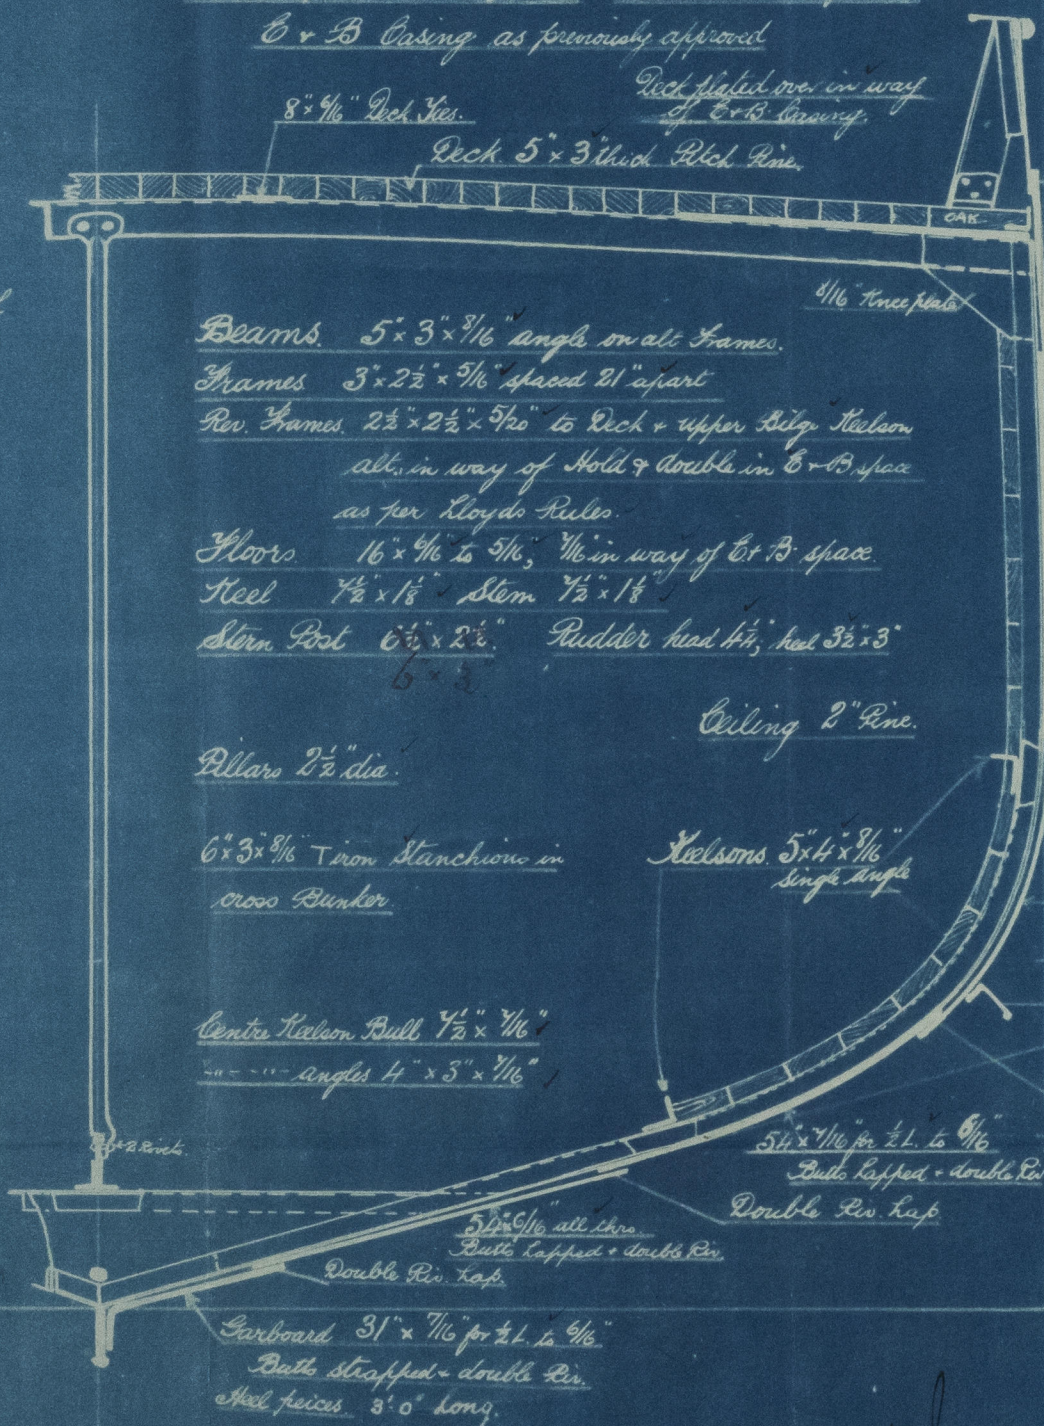 E & B Casing as previously approved
Deck plated over in way
of E+B Casing.
8" × 6/16" Deck Ties.
Deck 5" × 3" thick Pitch Pine.
OAK
8/16" Knee plate
Beams. 5" × 3" × 8/16" angle on alt Frames.
Frames 3" × 2½" × 5/16" spaced 21" apart
Rev. Frames. 2½" × 2½" × 5/20" to Deck + upper Bilge Keelson
alt. in way of Hold & double in E+B space
as per Lloyds Rules.
Floors. 16" × 6/16" to 5/16", 7/16" in way of E+B space.
Keel 7½" × 1⅛" Stem 7½" × 1⅛"
Stern Post 6½" × 2½". Rudder head 4¼", heel 3½" × 3"
6" × 3"
Ceiling 2" Pine.
Pillars 2½" dia.
6" × 3" × 8/16" T iron Stanchions in
cross Bunker.
Keelsons. 5" × 4" × 8/16"
Single Angle
Centre Keelson Bull 7½" × 7/16"
-"- - -"- angles 4" × 3" × 7/16"
2 Rivets.
54" × 7/16" for ½ L. to 6/16"
Butts Lapped + double Riv
Double Riv. Lap
54" × 6/16" all thro.
Butts Lapped + double Riv.
Double Riv. Lap.
Garboard 31" × 7/16" for ½ L. to 6/16"
Butts strapped + double Riv.
Heel peices. 3'-0" Long.